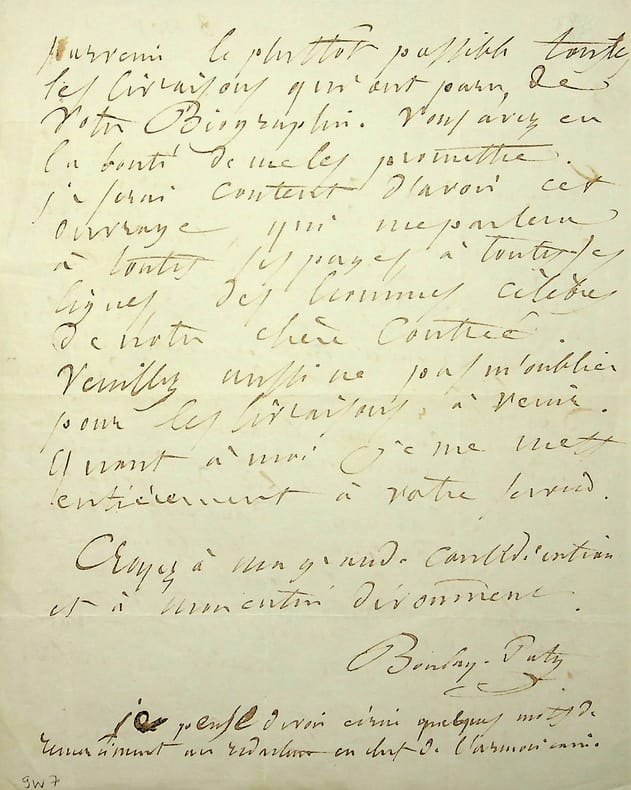 parvenir le plustôt possible toutes
les livraisons qui ont paru, de
votre Biographie. Vous avez eu
la bonté de me les promettre.
je serai content d'avoir cet
ouvrage qui me parlera
à toutes ses pages à toutes ses
lignes des hommes célèbres
de notre chère Contrée.
Veuillez aussi ne pas m'oublier
pour les livraisons à venir.
Quant à moi je me mets
entièrement à votre service.
Croyez à ma grande considération
et à mon entier dévoument.
Boulay-Paty
je pense devoir écrire quelques mots de
remerciement au rédacteur en chef de l'armoricain.
9W7